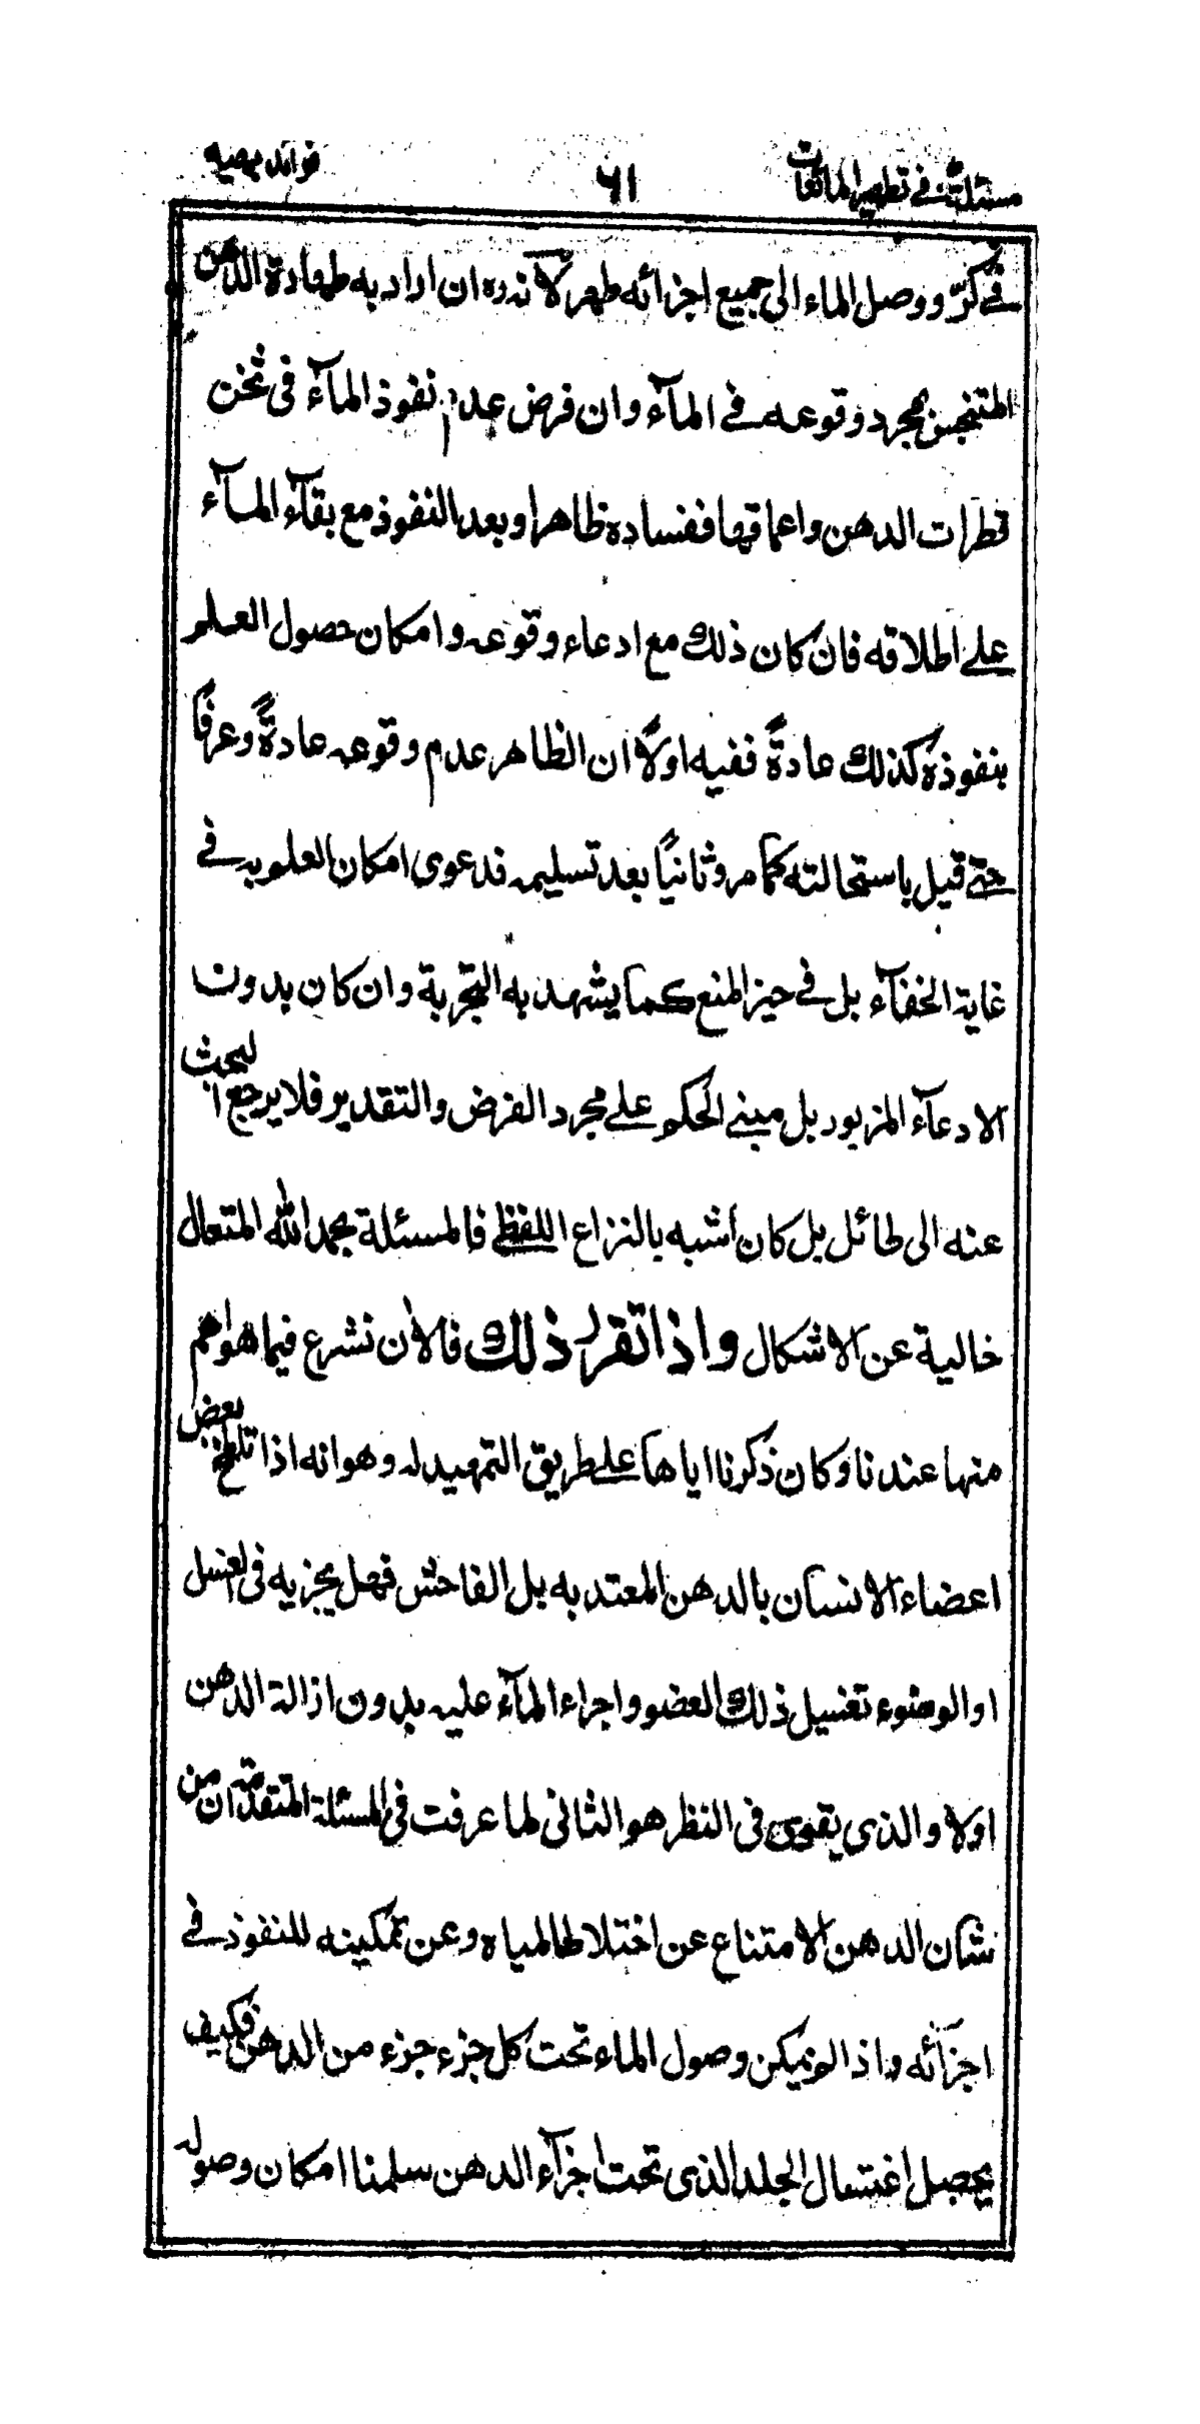 مسئلة في تطهير المائعات
٦١
فوائد بهيه
في كرّ ووصل الماء الى جميع اجزائه طهر لانه ان اراد به طهارة الدهن
المتنجس بمجرد وقوعه في المآء وان فرض عدم نفوذ المآء فى ثخن
قطرات الدهن واعماقها ففساده ظاهر او بعد النفوذ مع بقآء المآء
على اطلاقه فان كان ذلك مع ادعاء وقوعه وامكان حصول العلم
بنفوذه كذلك عادةً ففيه اولًا ان الظاهر عدم وقوعه عادةً وعرفًا
حتى قيل باستحالته كما مر وثانيًا بعد تسليمه فدعوى امكان العلم به في
غاية الخفآء بل في حيز المنع كما يشهد به التجربة وان كان بدون
الادعآء المزبور بل مبنى الحكم على مجرد الفرض والتقدير فلا يرجع البحث
عنه الى طائل بل كان أشبه بالنزاع اللفظي فالمسئلة بحمد الله المتعال
خالية عن الاشكال واذا تقرر ذلك فالأن نشرع فيما هو اهم
منها عندنا وكان ذكرنا اياها على طريق التمهيد له وهو انه اذا تلطخ بعض
اعضاء الانسان بالدهن المعتد به بل الفاحش فهل يجزيه فى الغسل
او الوضوء تغسيل ذلك العضو واجراء المآء عليه بدون ازالة الدهن
اولا والذى يقوى فى النظر هو الثانى لما عرفت فى المسئلة المتقدمة ان من
شان الدهن الامتناع عن اختلاط المياه وعن تمكينه للنفوذ في
اجزآئه واذا لم يمكن وصول الماء تحت كل جزء جزء من الدهن فكيف
يحصل اغتسال الجلد الذى تحت اجزآء الدهن سلمنا امكان وصوله